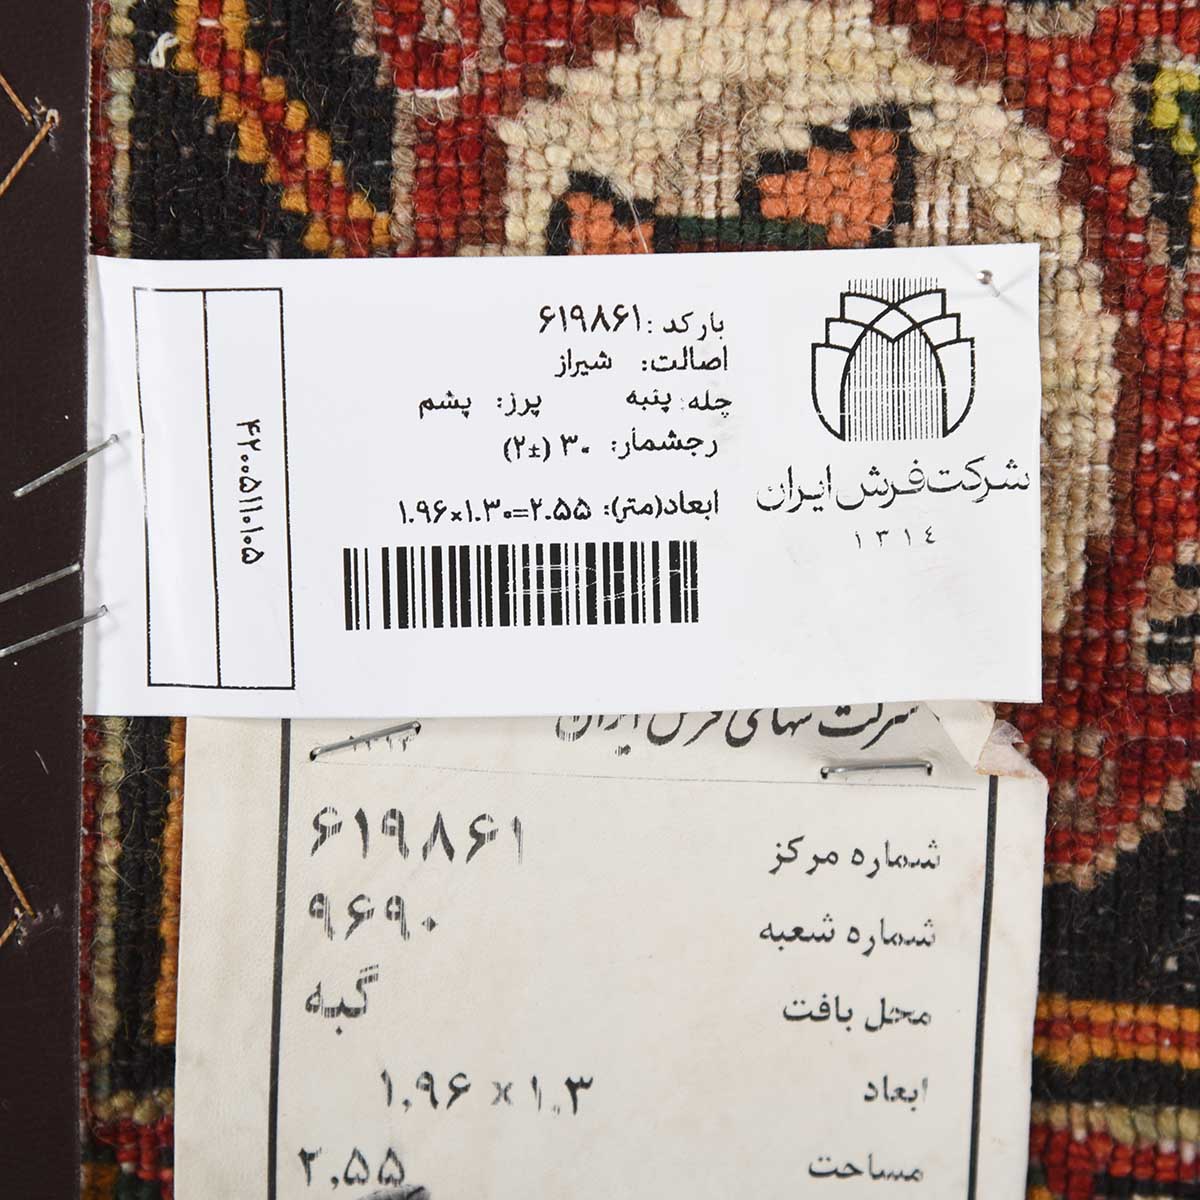 شرکت فرش ایران
۱۳۱۴
بارکد: ۶۱۹۸۶۱
اصالت: شیراز
چله: پنبه پرز: پشم
رجشمار: ۳۰ (±۲)
ابعاد(متر): ۱.۹۶×۱.۳۰=۲.۵۵
۴۲۰۰۵۱۱۰۱۰۵
شرکت سهامی فرش ایران
شماره مرکز ۶۱۹۸۶۱
شماره شعبه ۹۶۹۰
محل بافت گبه
ابعاد ۱.۹۶ x ۱.۳
مساحت ۲.۵۵